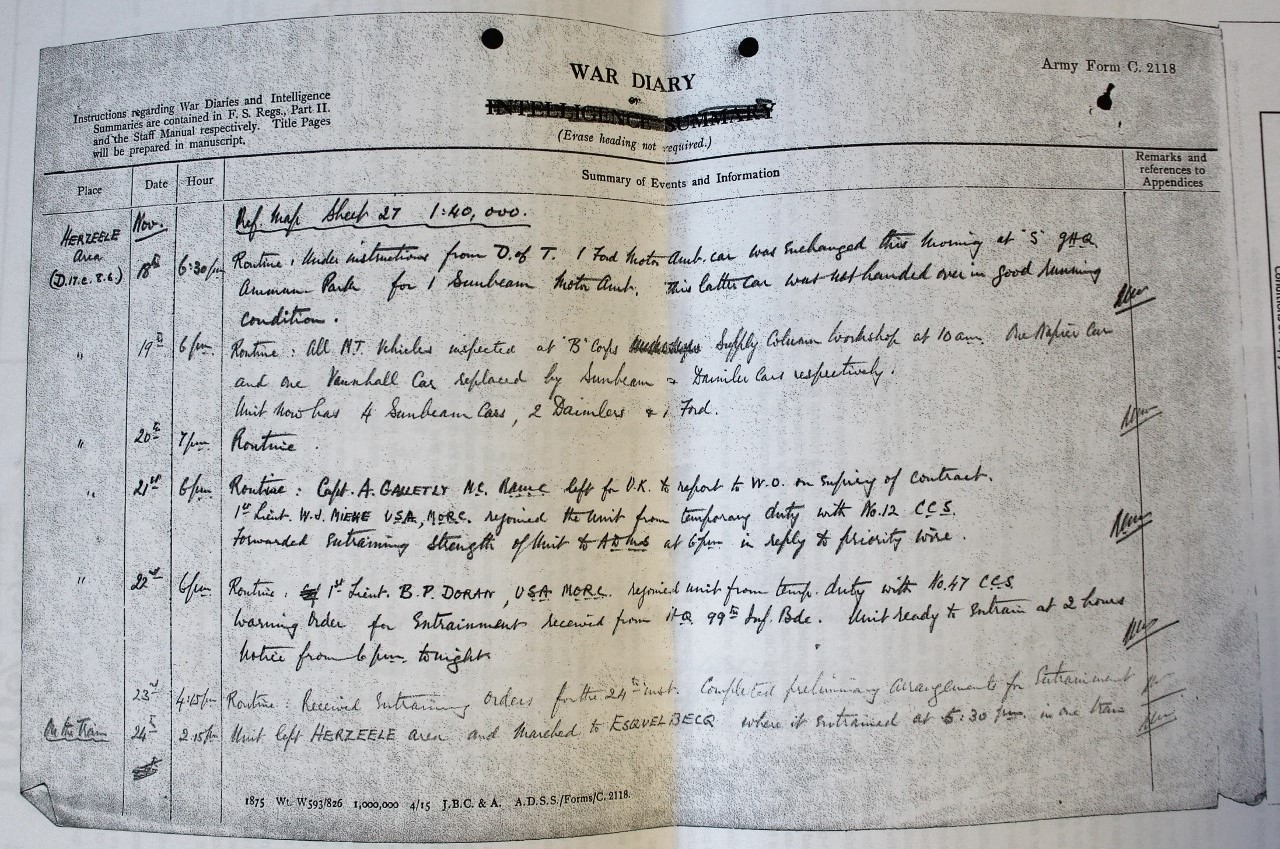 WAR DIARY
or
INTELLIGENCE SUMMARY
(Erase heading not required.)
Army Form C. 2118
Instructions regarding War Diaries and Intelligence
Summaries are contained in F. S. Regs., Part II.
and the Staff Manual respectively. Title Pages
will be prepared in manuscript.
Place Date Hour Summary of Events and Information Remarks and
references to
Appendices
HERZEELE Nov. Ref. Map Sheet 27 1:40,000.
Area
(D.17.c.8.6.) 18th 6:30pm Routine: Under instructions from D. of T. 1 Ford Motor Amb. car was exchanged this morning at "S" GHQ
Ammun Park for 1 Sunbeam Motor Amb. This latter car was not handed over in good running
condition.
" 19th 6pm Routine: All M.T. Vehicles inspected at "B" Corps Supply Column Workshop at 10am. One Napier Car
and one Vauxhall Car replaced by Sunbeam & Daimler Cars respectively.
Unit now has 4 Sunbeam Cars, 2 Daimlers & 1 Ford.
" 20th 7pm Routine.
" 21st 6pm Routine: Capt. A. GALLETLY M.C. RAMC left for U.K. to report to W.O. on expiry of contract.
1st Lieut. W.J. MIEHE USA, MORC. rejoined the unit from temporary duty with No.12 CCS.
Forwarded Entraining Strength of Unit to ADMS at 6pm in reply to priority wire.
" 22nd 6pm Routine: 1st Lieut. B.P. DORAN, USA MORC. rejoined unit from temp. duty with No.47 CCS
Warning Order for Entrainment received from HQ 99th Inf. Bde. Unit ready to Entrain at 2 hours
notice from 6pm. tonight
23rd 4:15pm Routine: Received Entraining Orders for the 24th inst. Completed preliminary arrangements for Entrainment
On the Train 24th 2.15pm Unit left HERZEELE area and marched to ESQUELBECQ where it entrained at 5:30 pm. in one train
1875 Wt. W593/826 1,000,000 4/15 J.B.C. & A. A.D.S.S./Forms/C. 2118.